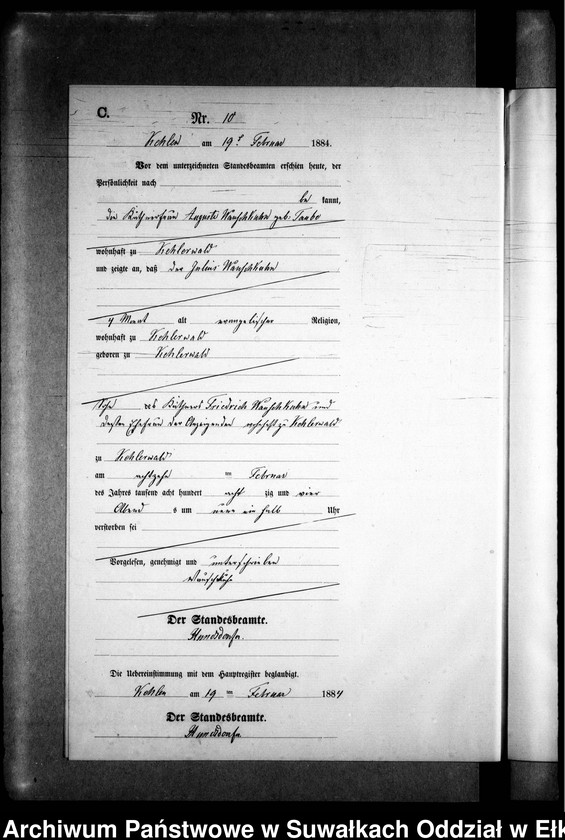 C.
Nr. 10
Kehlen am 19t Februar 1884.
Vor dem unterzeichneten Standesbeamten erschien heute, der
Persönlichkeit nach
be kannt,
die Käthnerfrau Auguste Wauschkuhn geb: Taube
wohnhaft zu Kehlerwald
und zeigte an, daß der Julius Wauschkuhn
4 Monat alt evangelischer Religion,
wohnhaft zu Kehlerwald
geboren zu Kehlerwald
Sohn des Käthners Friedrich Wauschkuhn und
dessen Ehefrau der Anzeigenden wohnhaft zu Kehlerwald
zu Kehlerwald
am achtzehn ten Februar
des Jahres tausend acht hundert acht zig und vier
Abend s um neun ein halb Uhr
verstorben sei
Vorgelesen, genehmigt und unterschrieben
Wauschkuhn
Der Standesbeamte.
Die Uebereinstimmung mit dem Hauptregister beglaubigt.
Kehlen am 19 ten Februar 1884
Der Standesbeamte.
Archiwum Państwowe w Suwałkach Oddział w Ełk